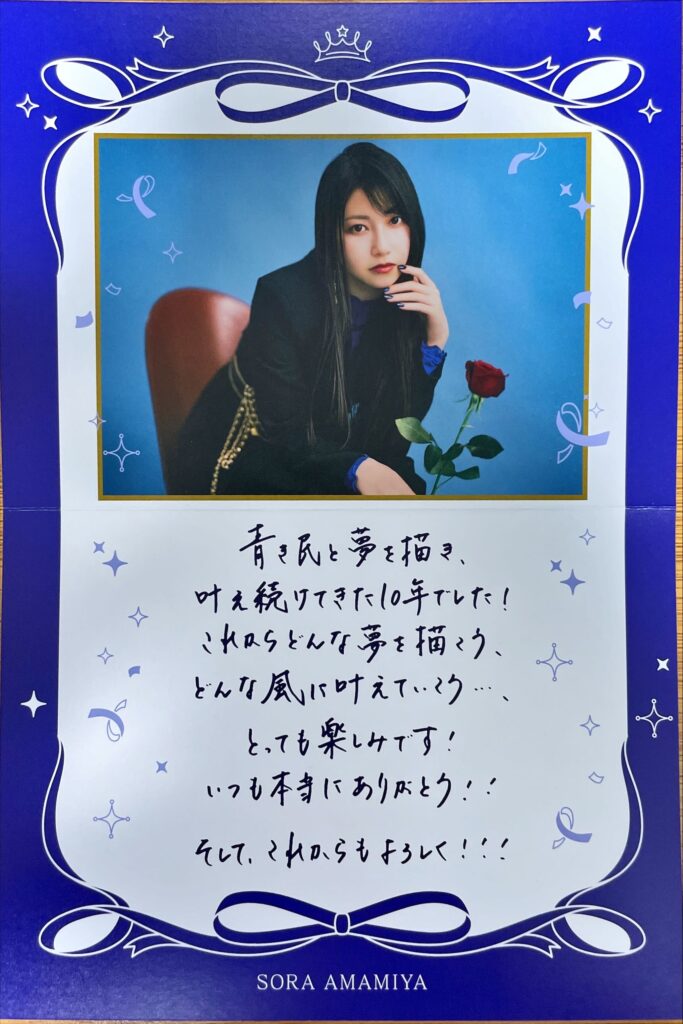 青き民と夢を描き、
叶え続けてきた10年でした!
これからどんな夢を描こう、
どんな風に叶えていこう…、
とっても楽しみです!
いつも本当にありがとう!!
そして、これからもよろしく!!!
SORA AMAMIYA